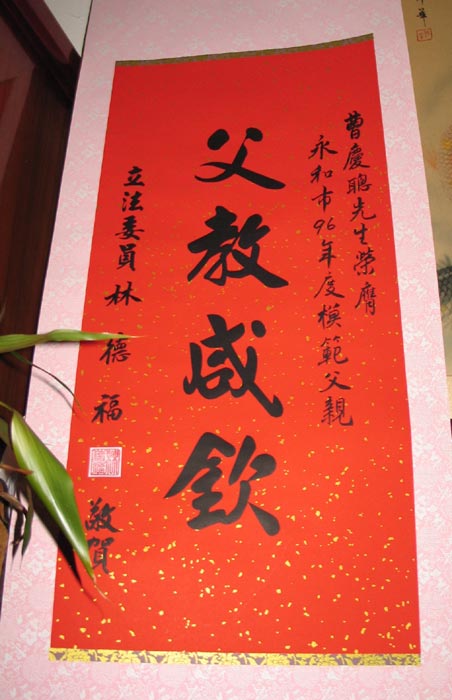 曹慶聰先生榮膺
永和市96年度模範父親
父教咸欽
立法委員林德福
敬賀